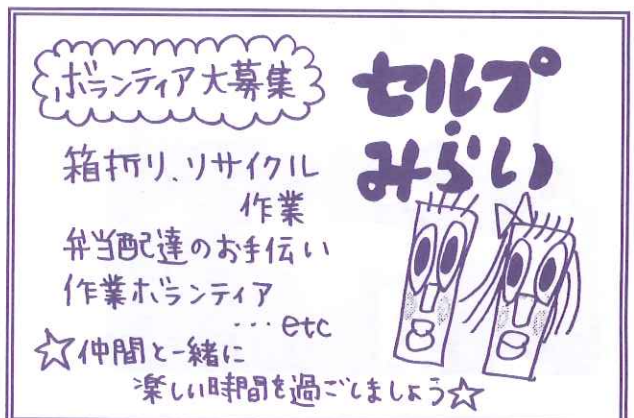 ボランティア大募集
セルプ・みらい
箱折り、リサイクル
作業
弁当配達のお手伝い
作業ボランティア
…etc
☆仲間と一緒に
楽しい時間を過ごしましょう☆